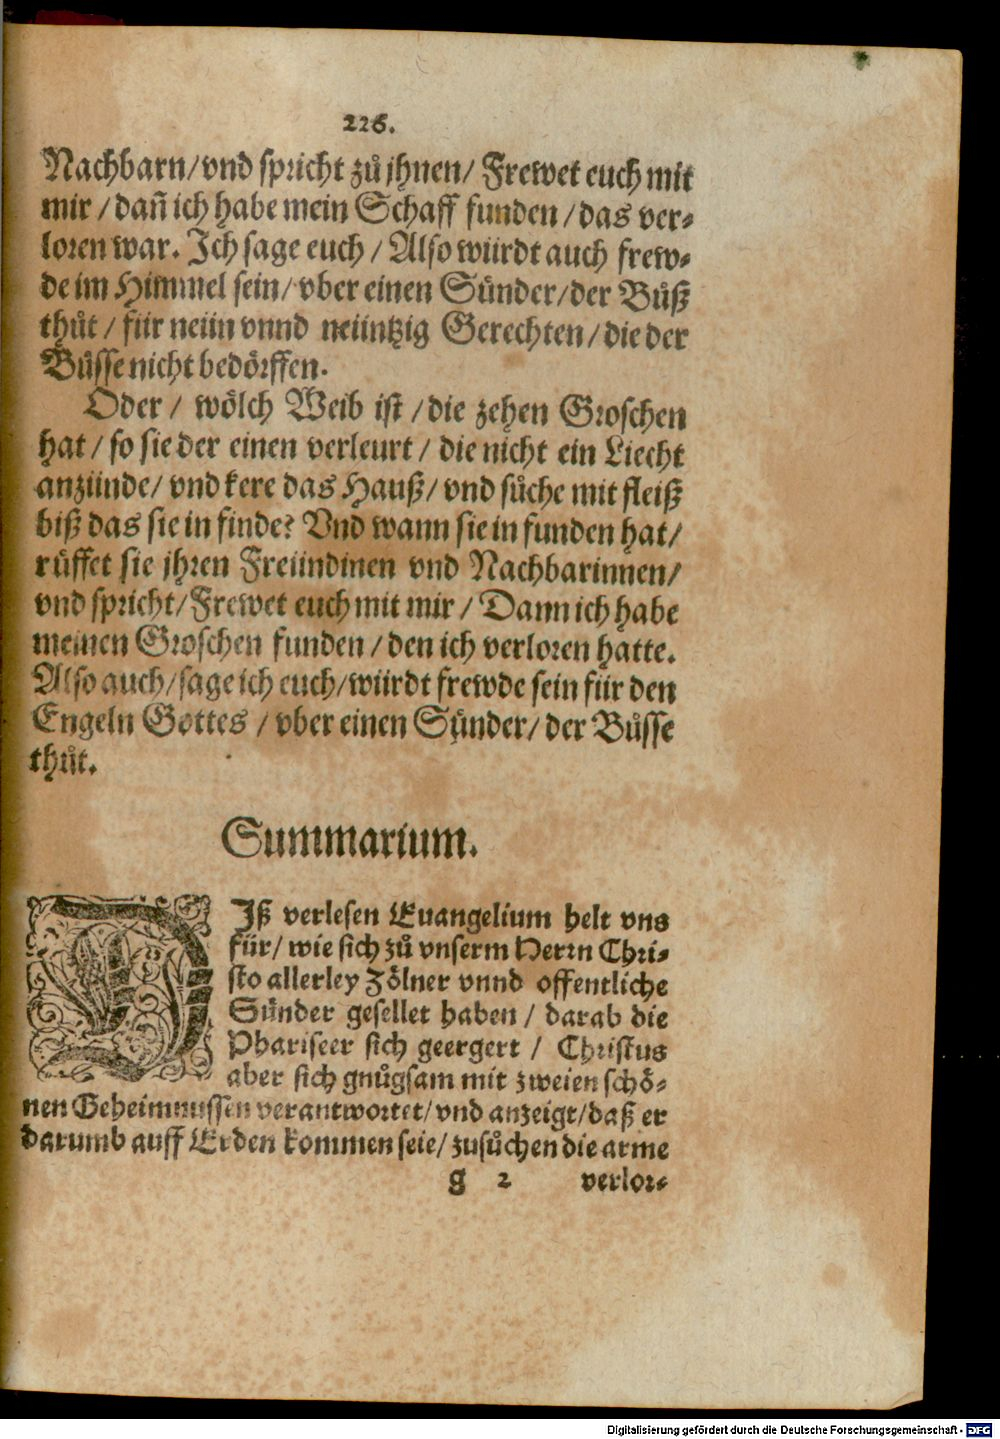 226.
Nachbarn/vnd spricht zů jhnen/ Frewet euch mit
mir / dañ ich habe mein Schaff funden /das ver⸗
loren war. Ich sage euch / Also würdt auch frew⸗
de im Himmel sein/ vber einen Sünder/der Bůß
thůt / für neün vnnd neüntzig Gerechten/ die der
Bůsse nicht bedörffen.
Oder / wölch Weib ist /die zehen Groschen
hat / so sie der einen verleurt / die nicht ein Liecht
anzünde/ vnd kere das Hauß/ vnd sůche mit fleiß
biß das sie in finde? Vnd wann sie in funden hat/
růffet sie jhren Freündinen vnd Nachbarinnen/
vnd spricht/Frewet euch mit mir / Dann ich habe
meinen Groschen funden / den ich verloren hatte.
Also auch/sage ich euch/würdt frewde sein für den
Engeln Gottes / vber einen Sünder/ der Bůsse
thůt.
Summarium.
DIß verlesen Euangelium helt vns
für/ wie sich zů vnserm Herrn Chri⸗
sto allerley Zölner vnnd offentliche
Sünder gesellet haben / darab die
Phariseer sich geergert / Christus
aber sich gnůgsam mit zweien schö⸗
nen Geheimnussen verantwortet/vnd anzeigt/daß er
darumb auff Erden kommen seie/ zusůchen die arme
g 2 verlor⸗
Digitalisierung gefördert durch die Deutsche Forschungsgemeinschaft - DFG